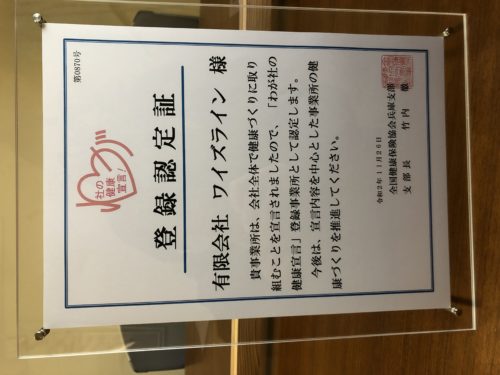 第0870号
社の
健康
宣言!
登録認定証
有限会社 ワイズライン 様
貴事業所は、会社全体で健康づくりに取り
組むことを宣言されましたので、「わが社の
健康宣言」登録事業所として認定します。
今後は、宣言内容を中心とした事業所の健
康づくりを推進してください。
令和2年11月26日
全国健康保険協会兵庫支部
支部長 竹内 徹